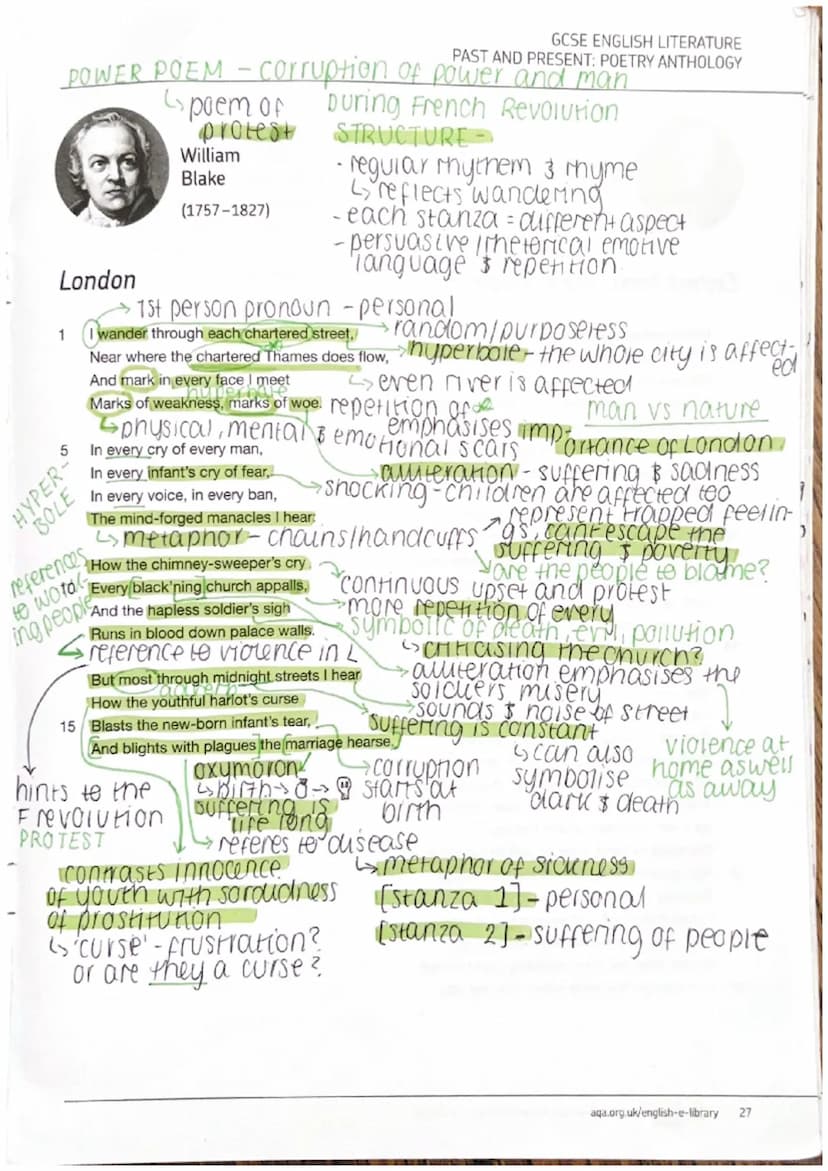 GCSE ENGLISH LITERATURE
PAST AND PRESENT: POETRY ANTHOLOGY
POWER POEM - corruption of power and man
↳ poem of protest
DURING FRENCH REVOLUTION
STRUCTURE -
- regular rhythem & rhyme
↳ reflects wandering
- each stanza = different aspect
- persuasive / rhetorical emotive
language & repetition
William
Blake
(1757–1827)
London
→ 1st person pronoun - personal
1 I wander through each chartered street,
→ random/purposeless
Near where the chartered Thames does flow,
→ hyperbole - the whole city is affect-
ed
And mark in every face I meet
→ even river is affected
hyperbole
Marks of weakness, marks of woe.
repetition of
emphasises importance of London
man vs nature
↳ physical, mental & emotional scars
5 In every cry of every man,
In every infant's cry of fear,
alliteration - suffering & sadness
→ shocking - children are affected too
In every voice, in every ban,
HYPER-
BOLE
The mind-forged manacles I hear:
↳ metaphor - chains/handcuffs
represent trapped feelin-
gs, cant escape the
suffering & poverty
are the people to blame?
references
to work-
ing people
How the chimney-sweeper's cry
continuous upset and protest
10 Every black'ning church appalls,
→ more repetition of every
And the hapless soldier's sigh
symbolic of death, evil, pollution
↳ criticising the church?
Runs in blood down palace walls.
reference to violence in L
alliteration emphasises the
soldiers misery
But most through midnight streets I hear
→ sounds & noise of street
How the youthful harlot's curse
suffering is constant
15 Blasts the new-born infant's tear,
And blights with plagues the marriage hearse.
↳ can also
symbolise
dark & death
violence at
home aswell
as away
oxymoron
↳ birth → →
suffering is
life long
→ corruption
starts at
birth
hints to the
F revolution
PROTEST
→ referes to disease
↳ metaphor of sickness
contrasts innocence
of youth with sordudness
of prostitution
↳ 'curse' - frustration?
or are they a curse?
[stanza 1] - personal
[stanza 2] - suffering of people
aqa.org.uk/english-e-library 27